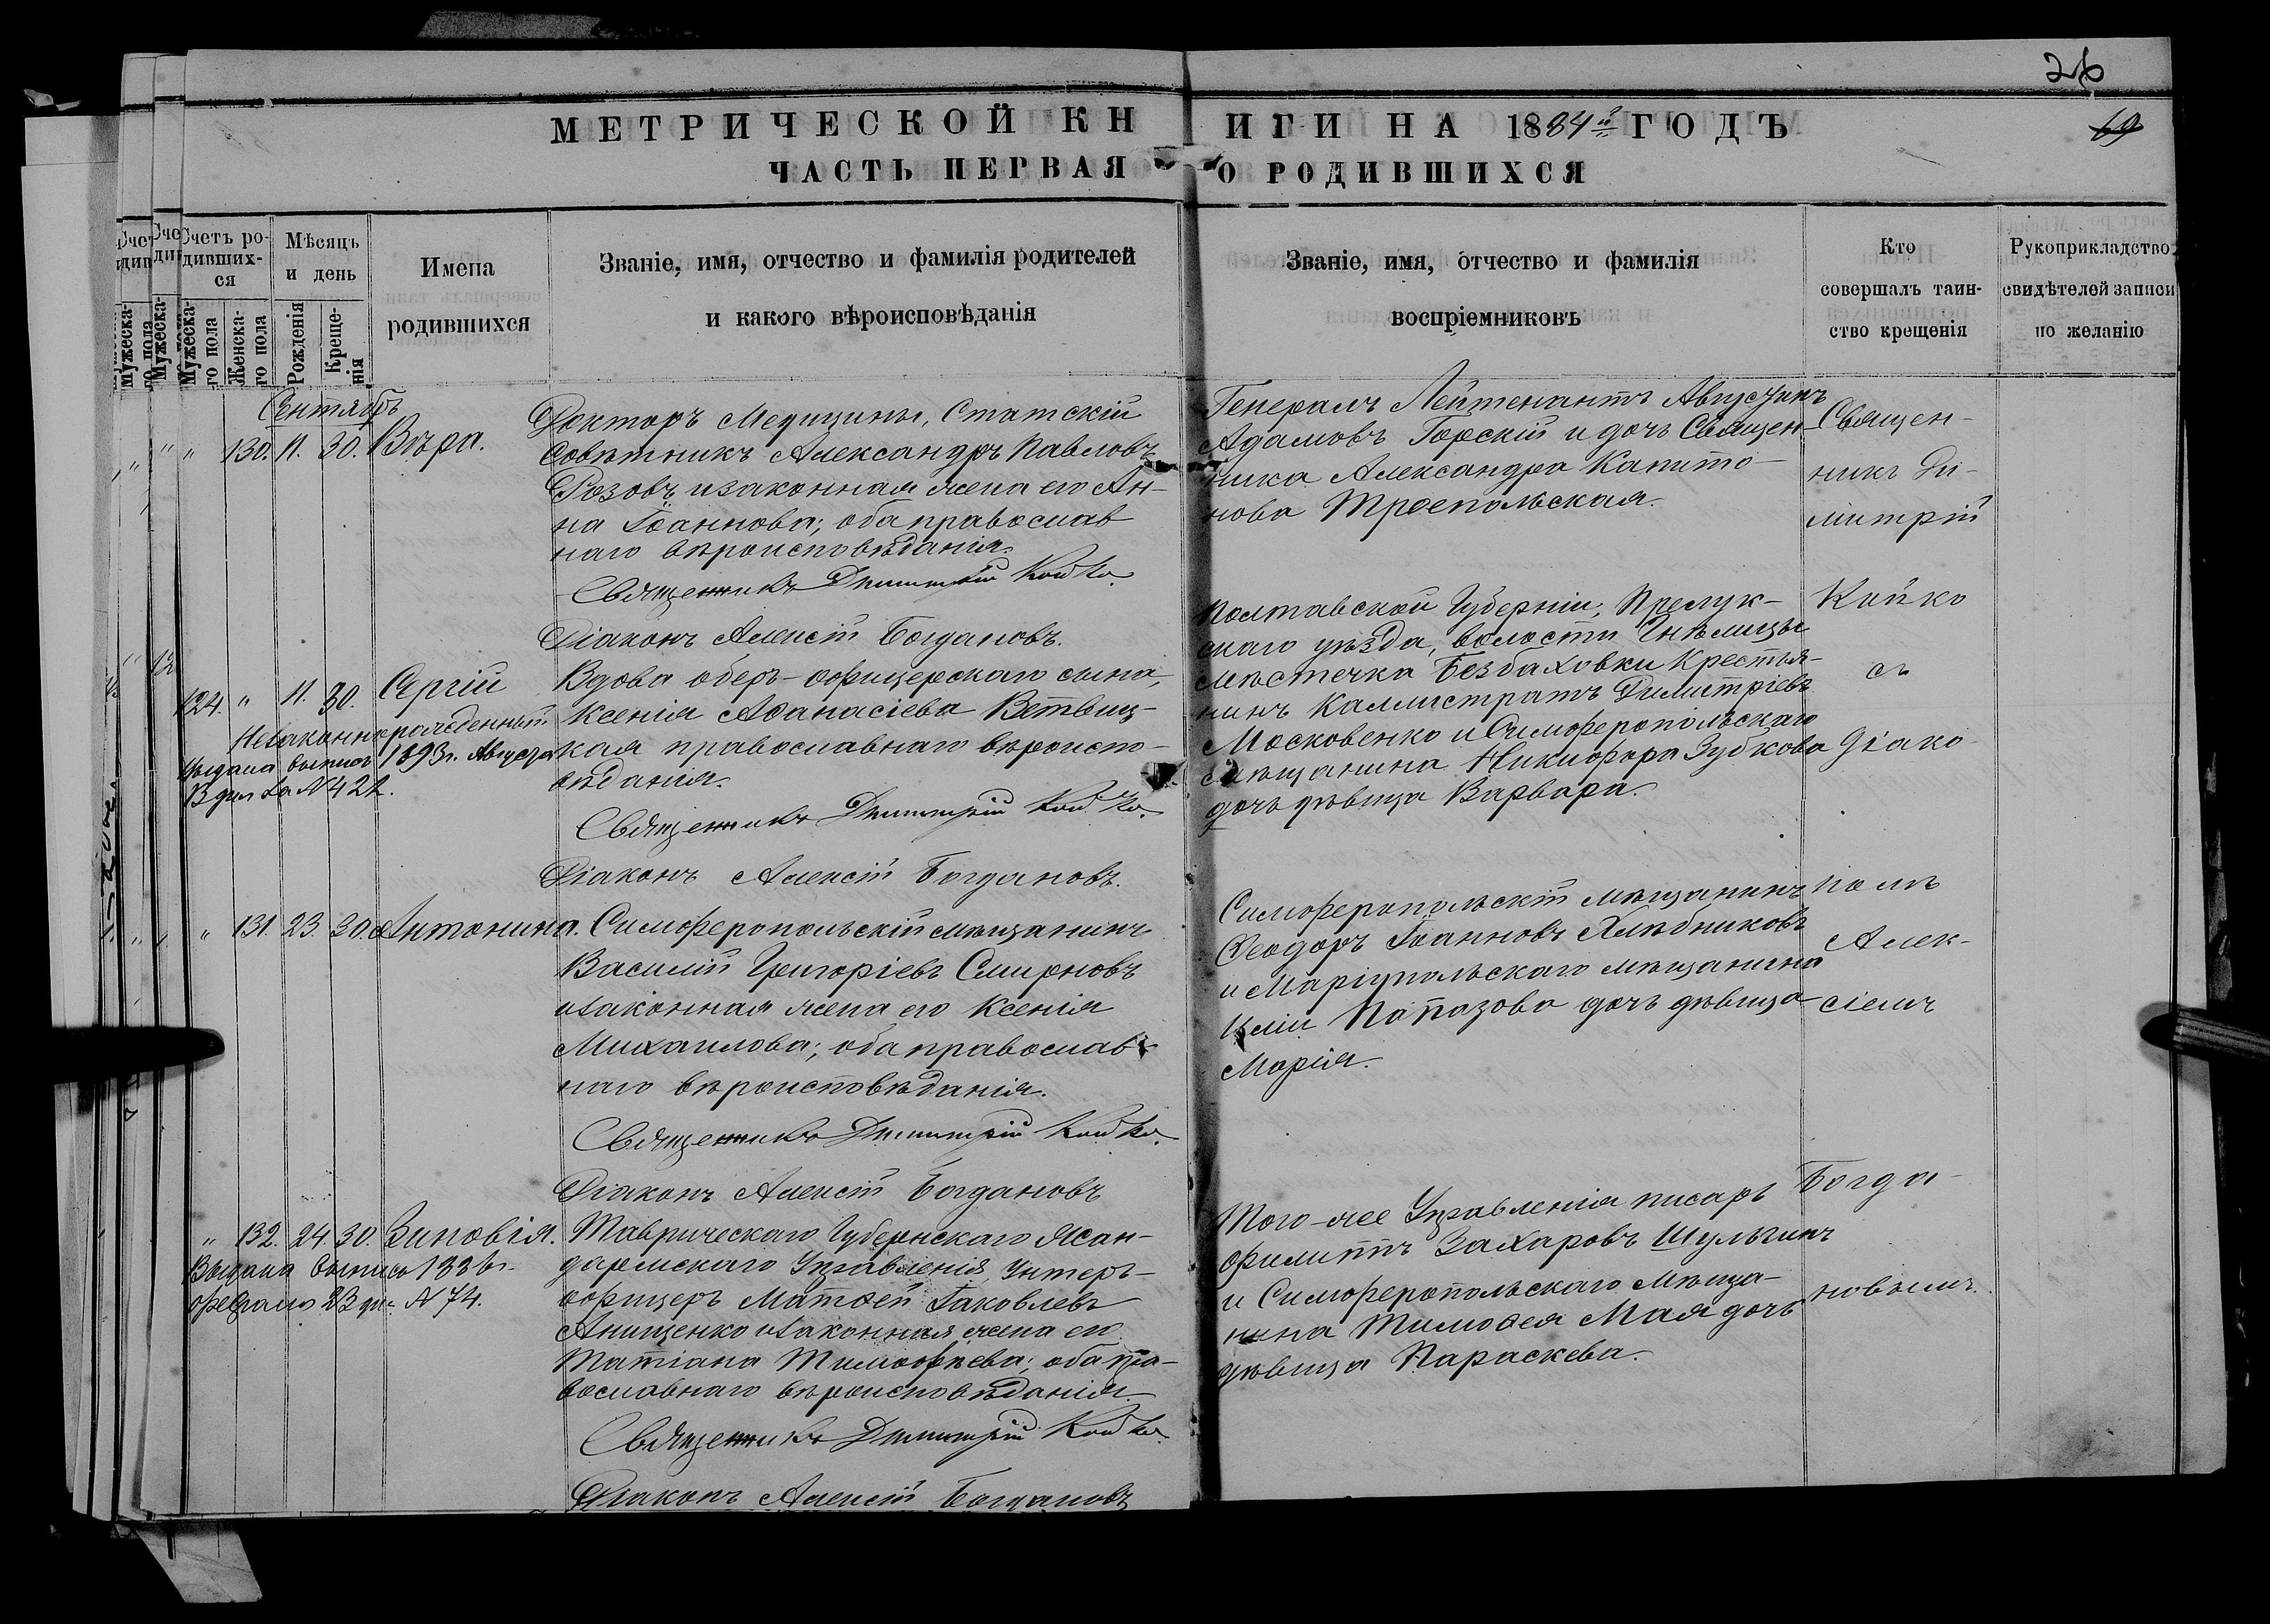 26
69
МЕТРИЧЕСКОЙ КНИГИ НА 1884й ГОДЪ
ЧАСТЬ ПЕРВАЯ О РОДИВШИХСЯ
Счетъ ро-
дивших-
ся
Мужеска-
го пола
Женска-
го пола
Мѣсяцъ
и день
Рожденія
Креще-
нія
Имена
родившихся
Званіе, имя, отчество и фамилія родителей
и какого вѣроисповѣданія
Званіе, имя, отчество и фамилія
воспріемниковъ
Кто
совершалъ таин-
ство крещенія
Рукоприкладство
свидѣтелей записи
по желанію
Сентябрь
" 130. 11. 30. Вѣра.
Докторъ Медицины, Статскій
Совѣтникъ Александръ Павловъ
Розовъ и законная жена его Ан-
на Іоаннова; оба православ
наго вѣроисповѣданія.
Священникъ Димитрій Койко.
Діаконъ Алексій Богдановъ.
Генералъ Лейтенантъ Августинъ
Адамовъ Горскій и дочь Священ-
ника Александра Капито-
нова Троепольская.
124. " 11. 30. Сергій
Незаконнорожденный
Выдана выпись 1893 г. Августа
В дня за № 422.
Вдова оберъ-офицерскаго сына,
Ксенія Аѳанасіева Ветвиц-
кая православнаго вѣроиспо-
вѣданія.
Священникъ Димитрій Койко.
Діаконъ Алексій Богдановъ.
Полтавской Губерніи, Прелук-
скаго уѣзда, волости Гнѣлицы
мѣстечка Безбаховки Крестья-
нинъ Каллистратъ Димитріевъ
Московенко и Симферопольскаго
мѣщанина Никифора Зубкова
дочь дѣвица Варвара.
" 131. 23. 30. Антонина.
Симферопольскій мѣщанинъ
Василій Григоріевъ Смирновъ
и законная жена его Ксенія
Михаилова; оба православ-
наго вѣроисповѣданія.
Священникъ Димитрій Койко.
Діаконъ Алексій Богдановъ
Симферопольскій мѣщанинъ
Ѳеодоръ Іоанновъ Хлѣбниковъ
и Маріупольскаго мѣщанина
Иліи Папазова дочь дѣвица
Марія.
" 132. 24. 30. Зиновія.
Выдана выпись 1886 г.
февраля 23 дня № 74.
Таврическаго Губернскаго Жан-
дармскаго Управленія, Унтеръ-
офицеръ Матѳей Іаковлевъ
Анищенко и законная жена его
Татіана Тимофѣева; оба пра-
вославнаго вѣроисповѣданія.
Священникъ Димитрій Койко.
Діаконъ Алексій Богдановъ
Того-же Управленія писарь
Филиппъ Захаровъ Шульгинъ
и Симферопольскаго Мѣща-
нина Тимоѳея Мая дочь
дѣвица Параскева.
Священ-
никъ Ди-
митрій
Койко
съ
діако-
номъ
Алек-
сіемъ
Богда-
новымъ.